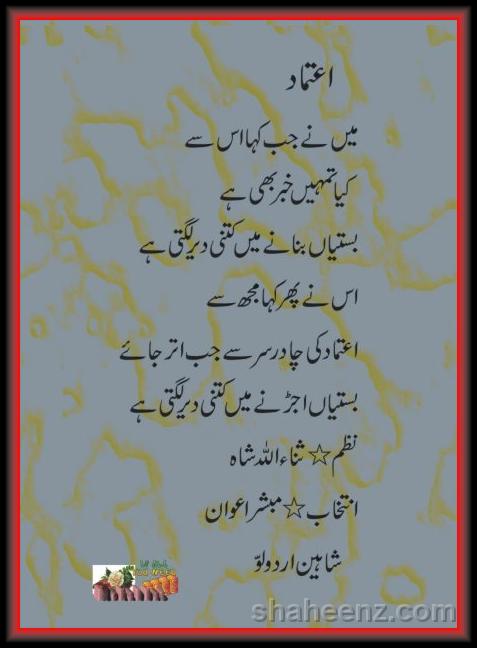 اعتماد
میں نے جب کہا اس سے
کیا تمہیں خبر بھی ہے
بستیاں بنانے میں کتنی دیر لگتی ہے
اس نے پھر کہا مجھ سے
اعتماد کی چادر سر سے جب اتر جائے
بستیاں اجڑنے میں کتنی دیر لگتی ہے
نظم☆ ثناء اللہ شاہ
انتخاب☆ مبشر اعوان
شاہین اردو لوّ
shaheenz.com